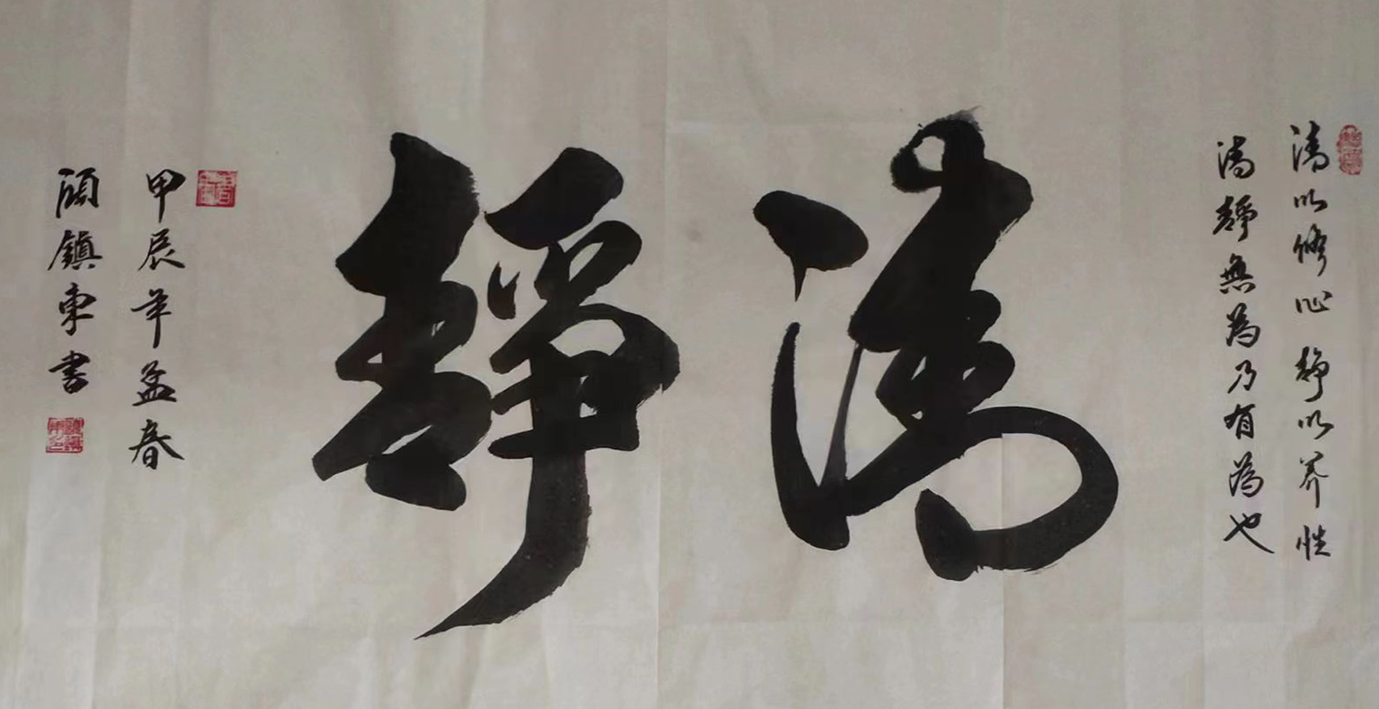 清以修心静以养性
清静無為乃有為也
清静
甲辰年孟春
顾鎮东書